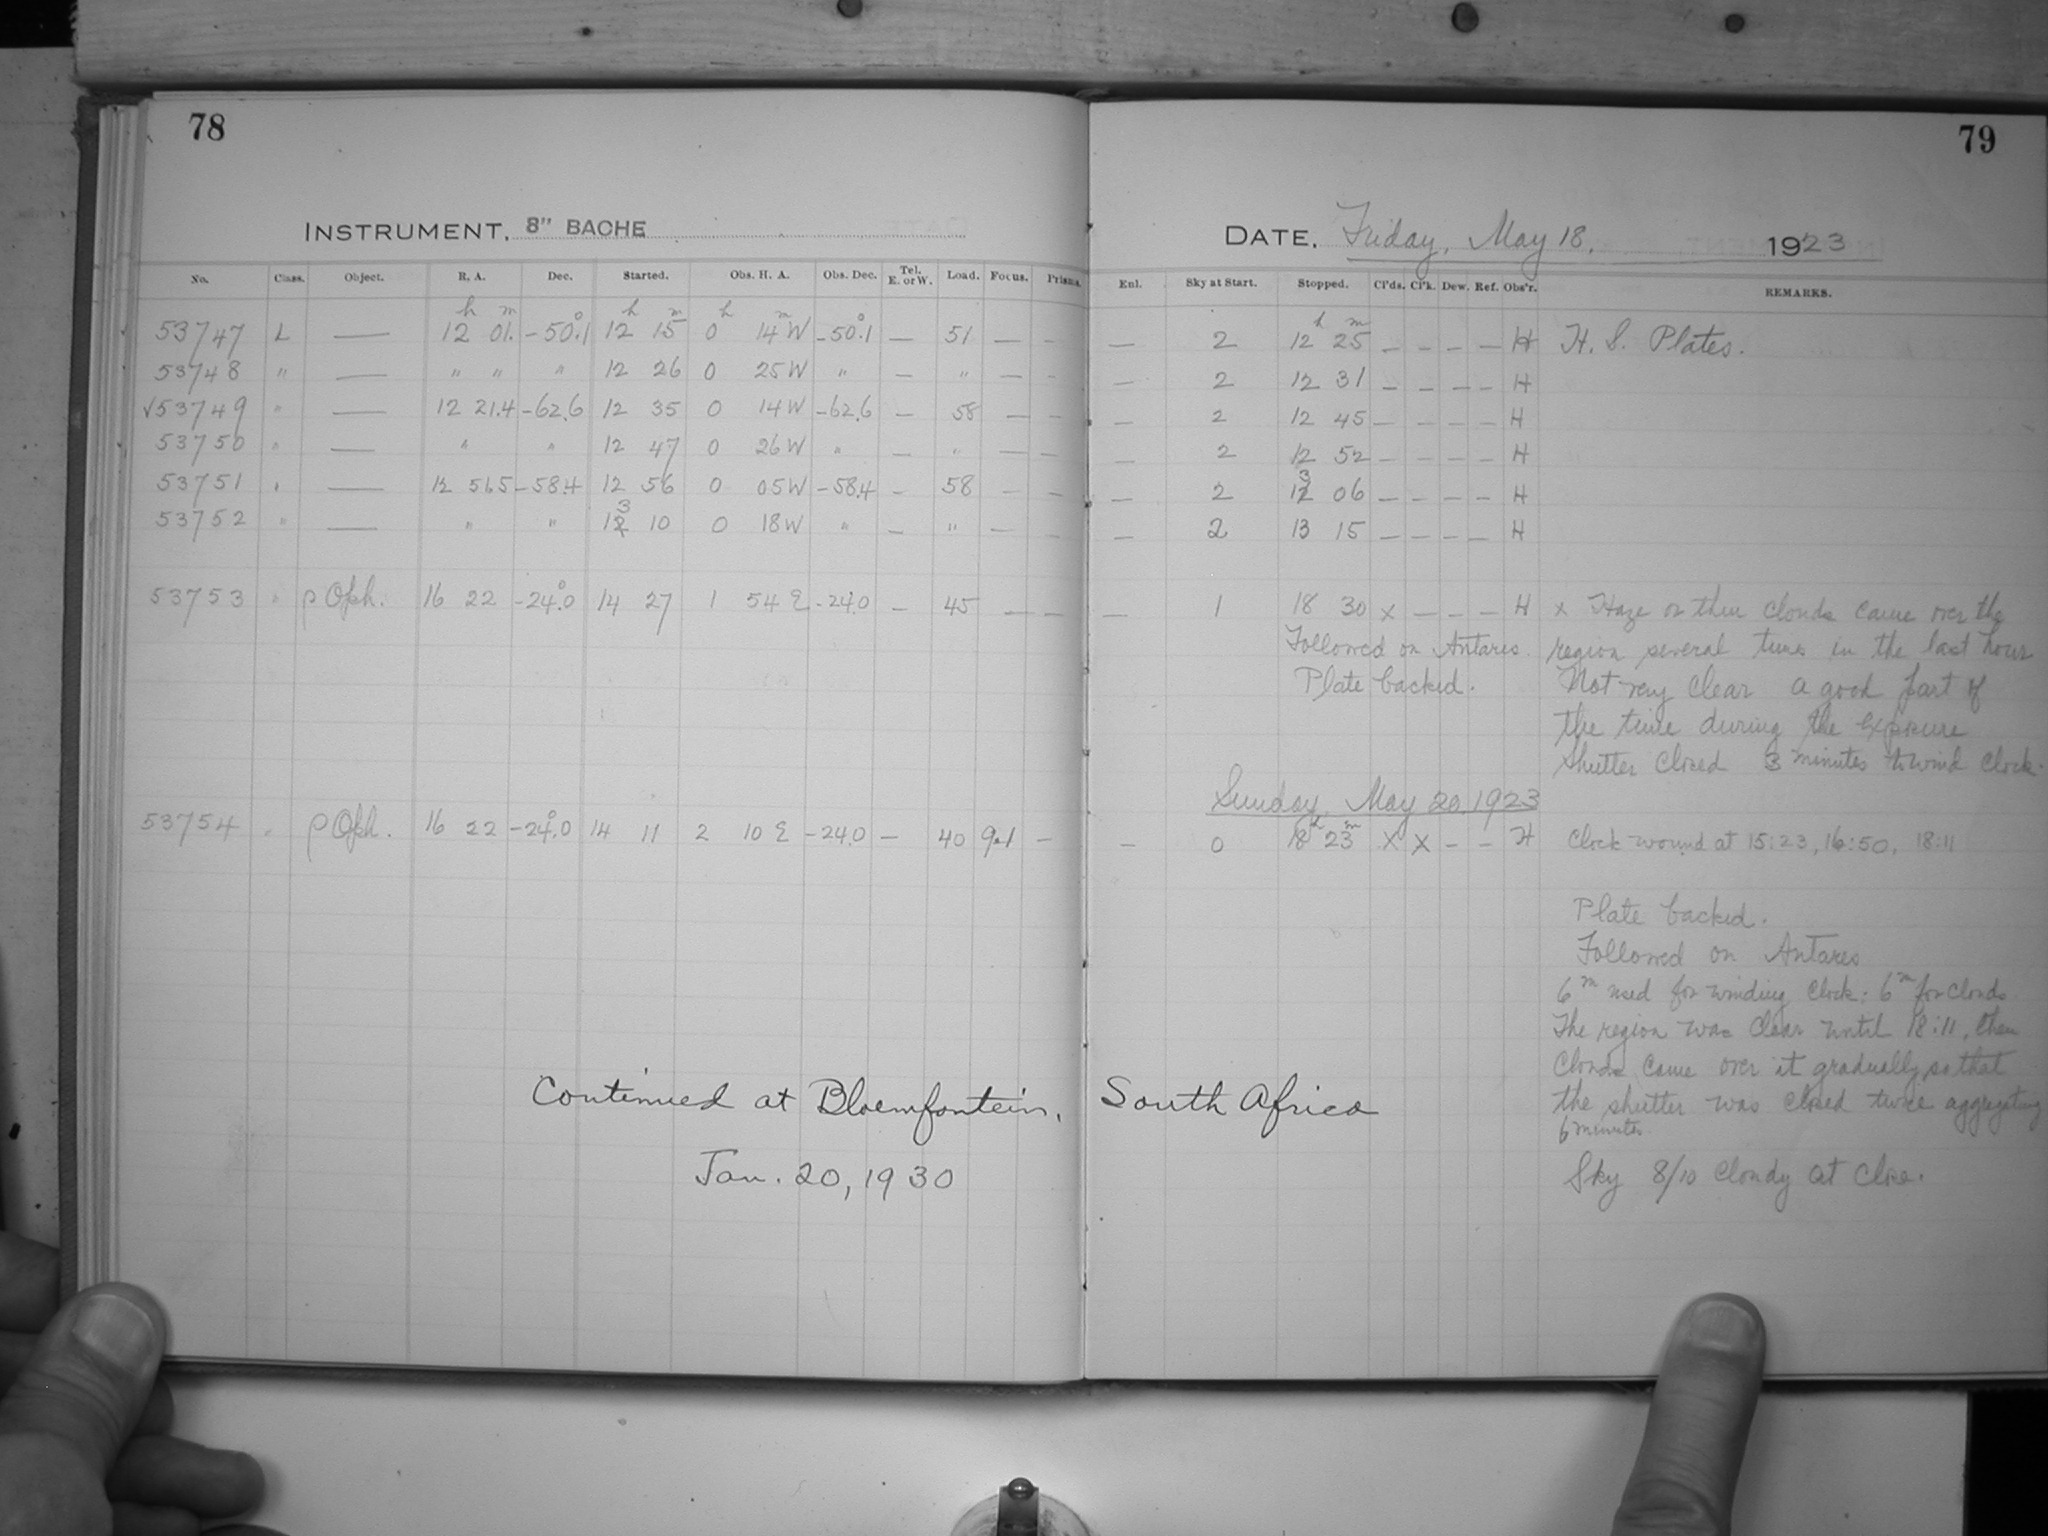 78
INSTRUMENT. 8" BACHE
No. Class. Object. R. A. Dec. Started. Obs. H. A. Obs. Dec. Tel. E. or W. Load. Focus. Prisms.
53747 L — 12h 01m. -50°.1 12h 15m 0h 14mW -50°.1 — 51 — -
53748 " — " " " 12 26 0 25W " — " — -
√53749 " — 12 21.4 -62.6 12 35 0 14W -62.6 — 58 — -
53750 " — " " 12 47 0 26W " — " — -
53751 " — 12 56.5 -58.4 12 56 0 05W -58.4 - 58 - -
53752 " — " " 13 10 0 18W " — " — -
53753 " ρ Oph. 16 22 -24°.0 14 27 1 54 E -24.0 — 45 — —
53754 " ρ Oph. 16 22 -24°.0 14 11 2 10 E -24.0 — 40 9.1 —
Continued at Bloemfontein,
Jan. 20, 1930
79
DATE. Friday, May 18, 1923
Enl. Sky at Start. Stopped. Cl'ds. Cl'k. Dew. Ref. Obs'r. REMARKS.
— 2 12h 25m — — — — H H. S. Plates.
— 2 12 31 — — — — H
— 2 12 45 — — — — H
— 2 12 52 — — — — H
— 2 13 06 — — — — H
— 2 13 15 — — — — H
— 1 18 30 x — — — H x Haze or thin clouds came over the
Followed on Antares. region several times in the last hour
Plate backed. Not very clear a good part of
the time during the exposure
Shutter closed 3 minutes to wind clock.
Sunday, May 20, 1923
— 0 18h 23m x x - - H Clock wound at 15:23, 16:50, 18:11
Plate backed.
Followed on Antares
6m used for winding clock; 6m for clouds
The region was clear until 18:11, then
clouds came over it gradually so that
the shutter was closed twice aggregating
6 minutes.
South Africa
Sky 8/10 cloudy at close.